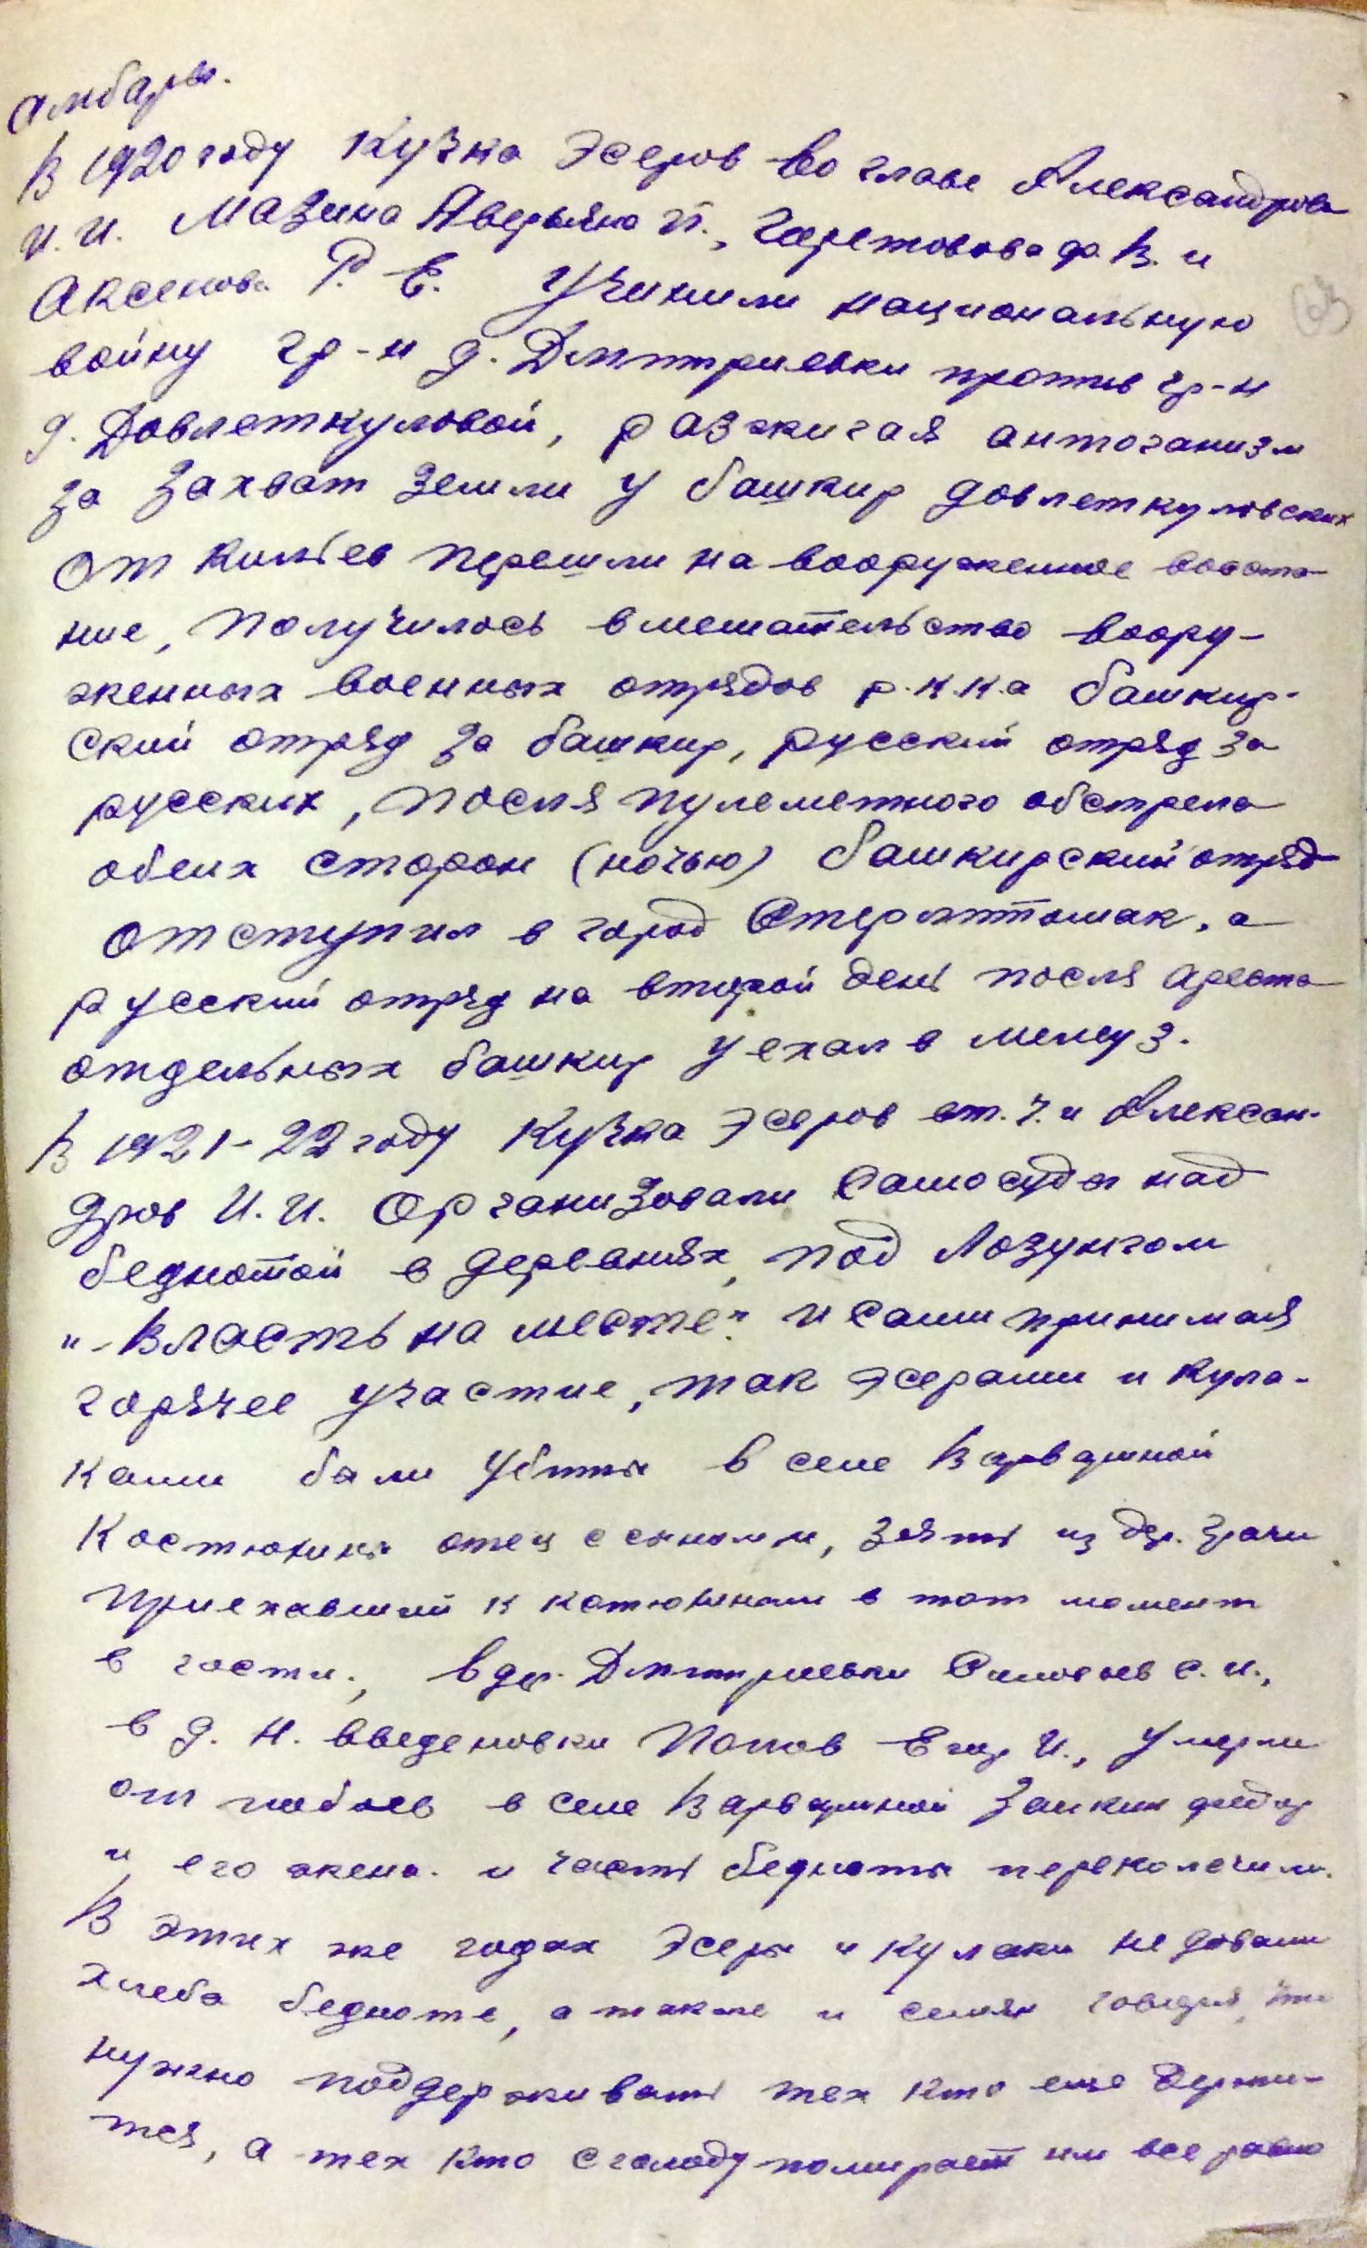 амбары.
В 1920 году Кучка Эсеров во главе Александрова
И.И. Мазина Аверьяна И., Ф.В. и
Аксенова Р.Е. Учинили национальную
войну гр-н д. Дмитриевки против гр-н
д. Довлеткуловой, разжигая антоганизм
за захват земли у башкир довлеткуловских
От Кольев перешли на вооруженное восста-
ние, получилось вмешательство воору-
женных военных отрядов р.к.к.а башкир-
ский отряд за башкир, русский отряд за
русских, посля пулеметного обстрела
обеих сторон (ночью) башкирский отряд
отступил в город Стерлитомак, а
русский отряд на второй день посля ареста
отдельных башкир уехал в мелеуз.
В 1921-22 году Кучка Эсеров в т.ч. и Алексан-
дров И.И. Организовали Самосуды над
беднотой в деревнях, под Лозунгом
"-Власть на месте" и сами принимая
горячее участие, так эсерами и кула-
ками были убиты в селе Варвариной
Костюнины отец с сыном, зять из дер.
приехавший к костюнинам в тот момент
в гости, в др. Дмитриевки с.и.,
в д. Н. Введеновки Попов Егор И., умерли
от побоев в селе Варвариной Заикин федор
и его жена. и часть бедноты перекалечили.
В этих же годах Эсеры и кулаки не давали
хлеба бедноте, а также и семян говоря, что
нужно поддерживать тех кто еще держи-
тся, а тех кто с голоду помирает им все равно